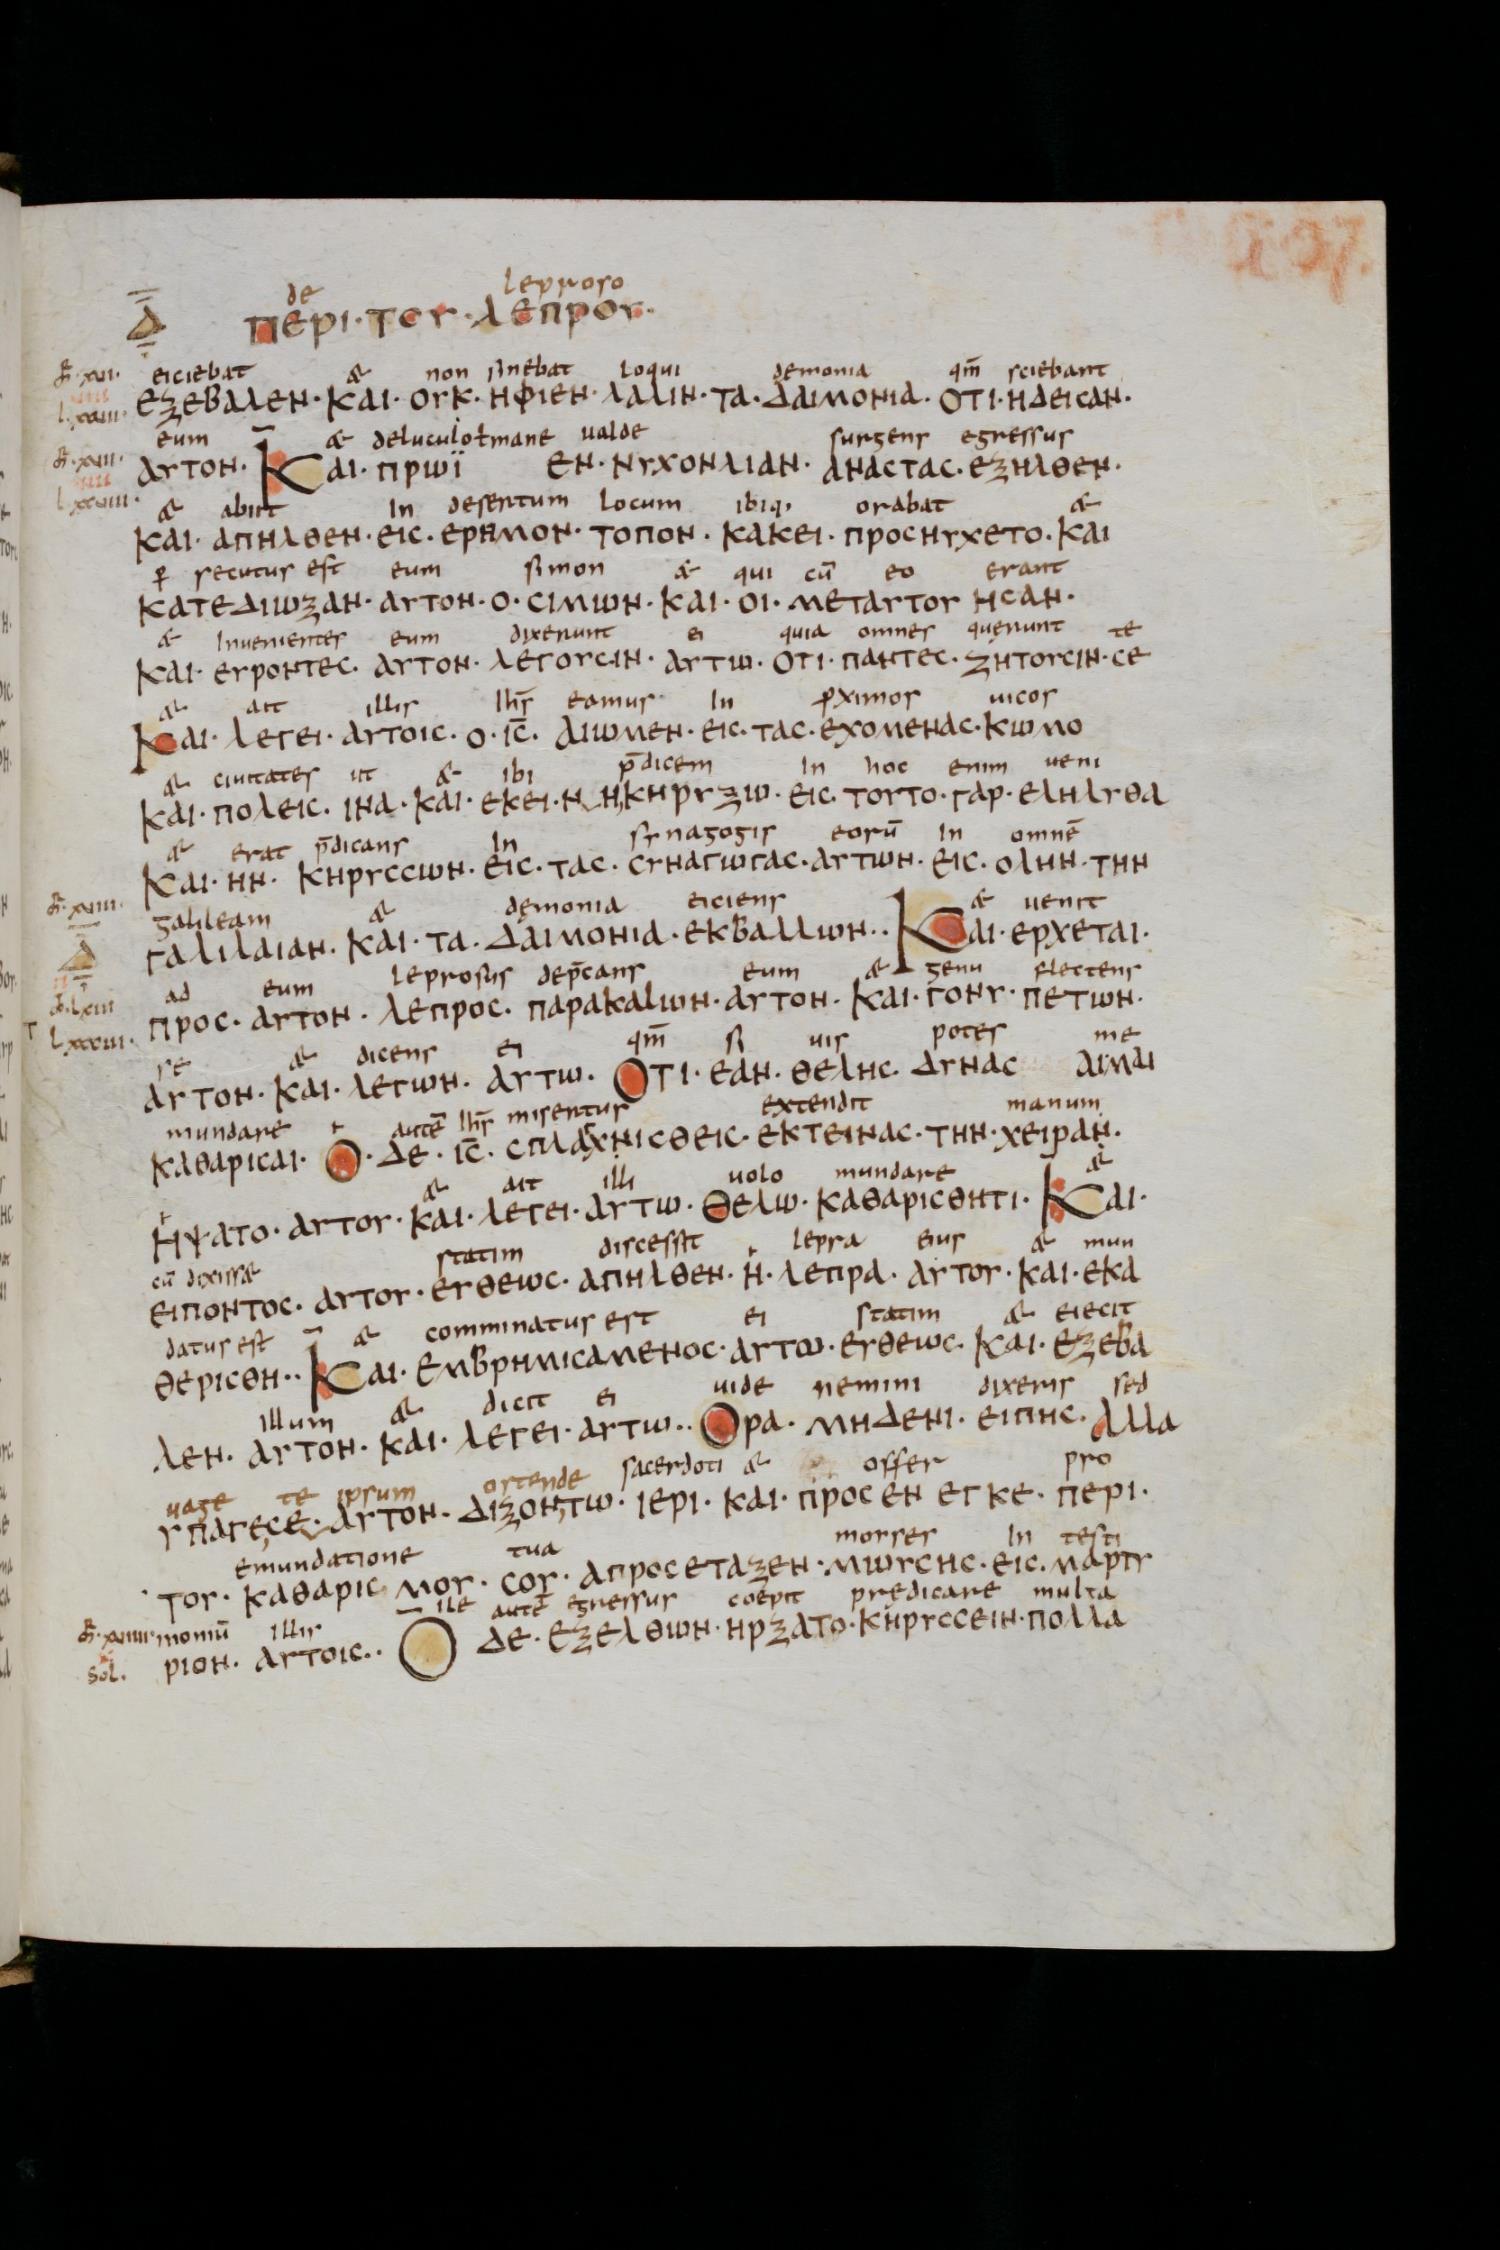 de leproso
Δ ΠΕΡΙ·ΤΟΥ·ΛΕΠΡΟΥ·
eiciebat & non sinebat loqui demonia qm̄ sciebant
ΕΞΕΒΑΛΕΝ·ΚΑΙ·ΟΥΚ·ΗΦΙΕΝ·ΛΑΛΙΝ·ΤΑ·ΔΑΙΜΟΝΙΑ·ΟΤΙ·ΗΔΕΙCΑΝ·
eum & deluculo ł mane ualde surgens egressus
ΑΥΤΟΝ·ΚΑΙ·ΠΡΩΪ ΕΝ·ΝΥΧΟΝΛΙΑΝ·ΑΝΑCΤΑC·ΕΞΗΛΘΕΝ·
& abiit In desertum locum ibiq; orabat &
ΚΑΙ·ΑΠΗΛΘΕΝ·ΕΙC·ΕΡΗΜΟΝ·ΤΟΠΟΝ·ΚΑΚΕΙ·ΠΡΟCΗΥΧΕΤΟ·ΚΑΙ
ꝑ secutus est eum simon & qui cū eo erant
ΚΑΤΕΔΙΩΞΑΝ·ΑΥΤΟΝ·Ο·CΙΜΩΝ·ΚΑΙ·ΟΙ·ΜΕΤΑΥΤΟΥ ΗCΑΝ·
& Inuenientes eum dixerunt ei quia omnes quęrunt te
ΚΑΙ·ΕΥΡΟΝΤΕC·ΑΥΤΟΝ·ΛΕΓΟΥCΙΝ·ΑΥΤΩ·ΟΤΙ·ΠΑΝΤΕC·ΖΗΤΟΥCΙΝ·CΕ
& ait illis Ihs̄ eamus In ꝓximos uicos
ΚΑΙ·ΛΕΓΕΙ·ΑΥΤΟΙC·Ο·ΙC̄·ΑΙΩΜΕΝ·ΕΙC·ΤΑC·ΕΧΟΜΕΝΑC·ΚΩΜΟ
& ciuitates ut & ibi p̄dicem In hoc enim ueni
ΚΑΙ·ΠΟΛΕΙC·ΙΝΑ·ΚΑΙ·ΕΚΕΙ·Ν ΗΚΗΡΥΞΩ·ΕΙC·ΤΟΥΤΟ·ΓΑΡ·ΕΛΗΛΥΘΑ
& erat p̄dicans In synagogis eorū In omnē
ΚΑΙ·ΗΝ·ΚΗΡΥCCΩΝ·ΕΙC·ΤΑC·CΥΝΑΓΩΓΑC·ΑΥΤΩΝ·ΕΙC·ΟΛΗΝ·ΤΗΝ
galileam & dęmonia eiciens & uenit
ΓΑΛΙΛΑΙΑΝ·ΚΑΙ·ΤΑ·ΔΑΙΜΟΝΙΑ·ΕΚΒΑΛΛΩΝ··ΚΑΙ·ΕΡΧΕΤΑΙ·
ad eum leprosus dep̄cans eum & genu flectens
ΠΡΟC·ΑΥΤΟΝ·ΛΕΠΡΟC·ΠΑΡΑΚΑΛΩΝ·ΑΥΤΟΝ·ΚΑΙ·ΓΟΝΥ·ΠΕΤΩΝ·
se & dicens ei qm̄ si uis potes me
ΑΥΤΟΝ·ΚΑΙ·ΛΕΓΩΝ·ΑΥΤΩ·ΟΤΙ·ΕΑΝ·ΘΕΛΗC·ΔΥΝΑC ΑΙΜΑΙ
mundare autē Ihs̄ misertus extendit manum
ΚΑΘΑΡΙCΑΙ·Ο·ΔΕ·ΙC̄·CΠΛΑΓΧΝΙCΘΕΙC·ΕΚΤΕΙΝΑC·ΤΗΝ·ΧΕΙΡΑΝ·
& ait illi uolo mundare &
ΗΨΑΤΟ·ΑΥΤΟΥ·ΚΑΙ·ΛΕΓΕΙ·ΑΥΤΩ·ΘΕΛΩ·ΚΑΘΑΡΙCΘΗΤΙ·ΚΑΙ·
cū dixiss& statim discessit lepra eius & mun
ΕΙΠΟΝΤΟC·ΑΥΤΟΥ·ΕΥΘΕΩC·ΑΠΗΛΘΕΝ·Η·ΛΕΠΡΑ·ΑΥΤΟΥ·ΚΑΙ·ΕΚΑ
datus est & comminatus est ei statim & eiecit
ΘΕΡΙCΘΗ··ΚΑΙ·ΕΜΒΡΗΜΙCΑΜΕΝΟC·ΑΥΤΩ·ΕΥΘΕΩC·ΚΑΙ·ΕΞΕΒΑ
illum & dicit ei uide nemini dixeris sed
ΛΕΝ·ΑΥΤΟΝ·ΚΑΙ·ΛΕΓΕΙ·ΑΥΤΩ··ΟΡΑ·ΜΗΔΕΝΙ·ΕΙΠΗC·ΑΛΛΑ
uage te ipsum ostende sacerdoti & offer pro
ΥΠΑΓΕCΕ·ΑΥΤΟΝ·ΔΙΞΟΝΤΩ·ΙΕΡΙ·ΚΑΙ·ΠΡΟCΕΝ ΕΓΚΕ·ΠΕΡΙ·
emundatione tua morses In testi
ΤΟΥ·ΚΑΘΑΡΙC ΜΟΥ·CΟΥ·ΑΠΡΟCΕΤΑΞΕΝ·ΜΩΥCΗC·ΕΙC·ΜΑΡΤΥ
moniū illis ille autē egressus coepit prędicare multa
ΡΙΟΝ·ΑΥΤΟΙC··Ο ΔΕ·ΕΞΕΛΘΩΝ·ΗΡΞΑΤΟ·ΚΗΡΥCCΕΙΝ·ΠΟΛΛΑ